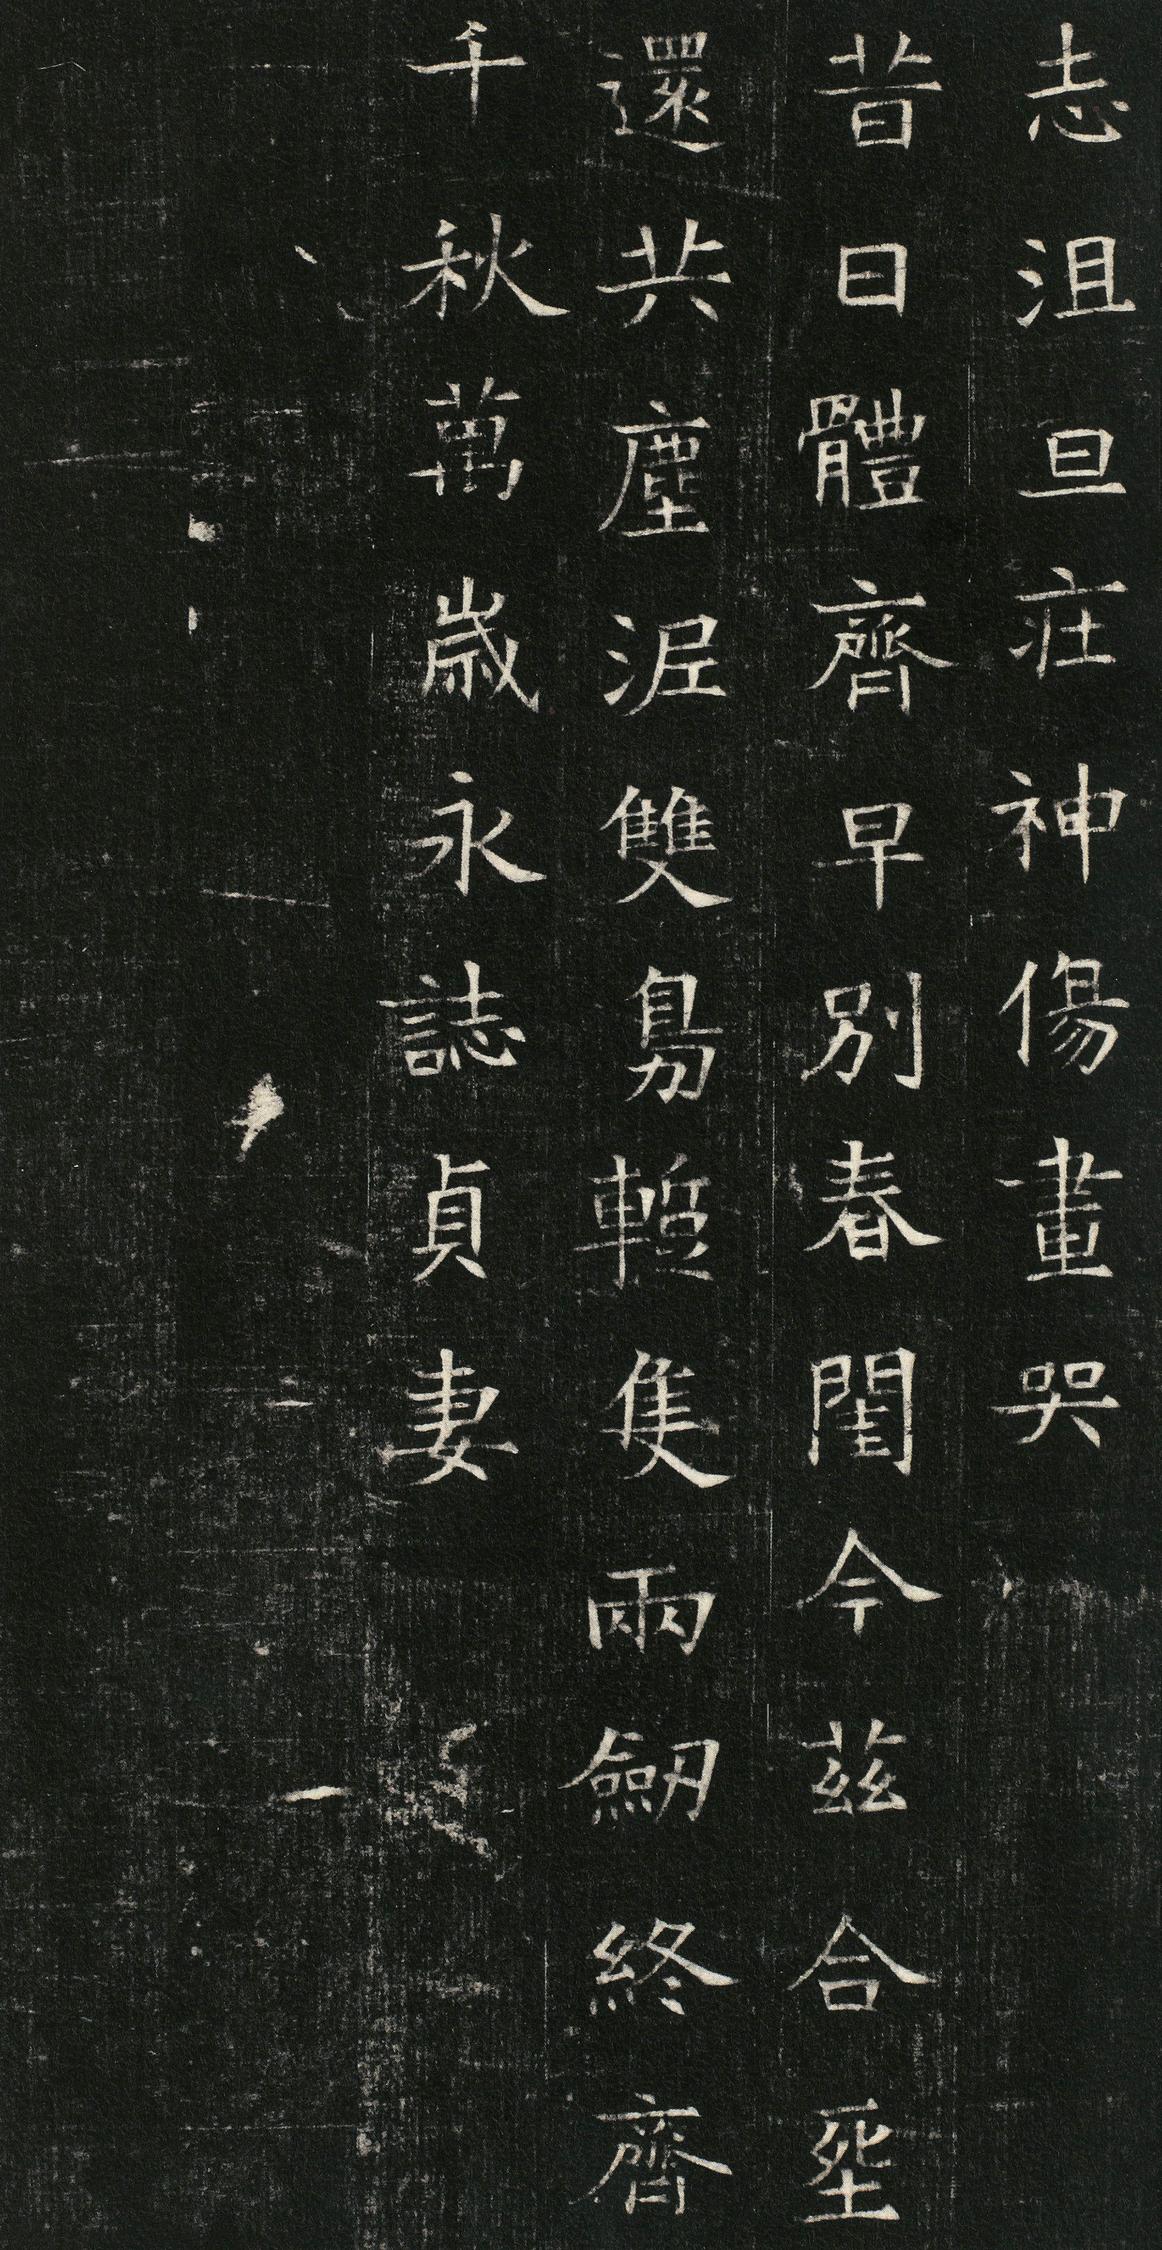 志沮旦庄神傷畫哭
昔日體齊早別春閨今茲合葬
還共塵泥雙鳧暫隻兩劒終齊
千秋萬歲永誌貞妻